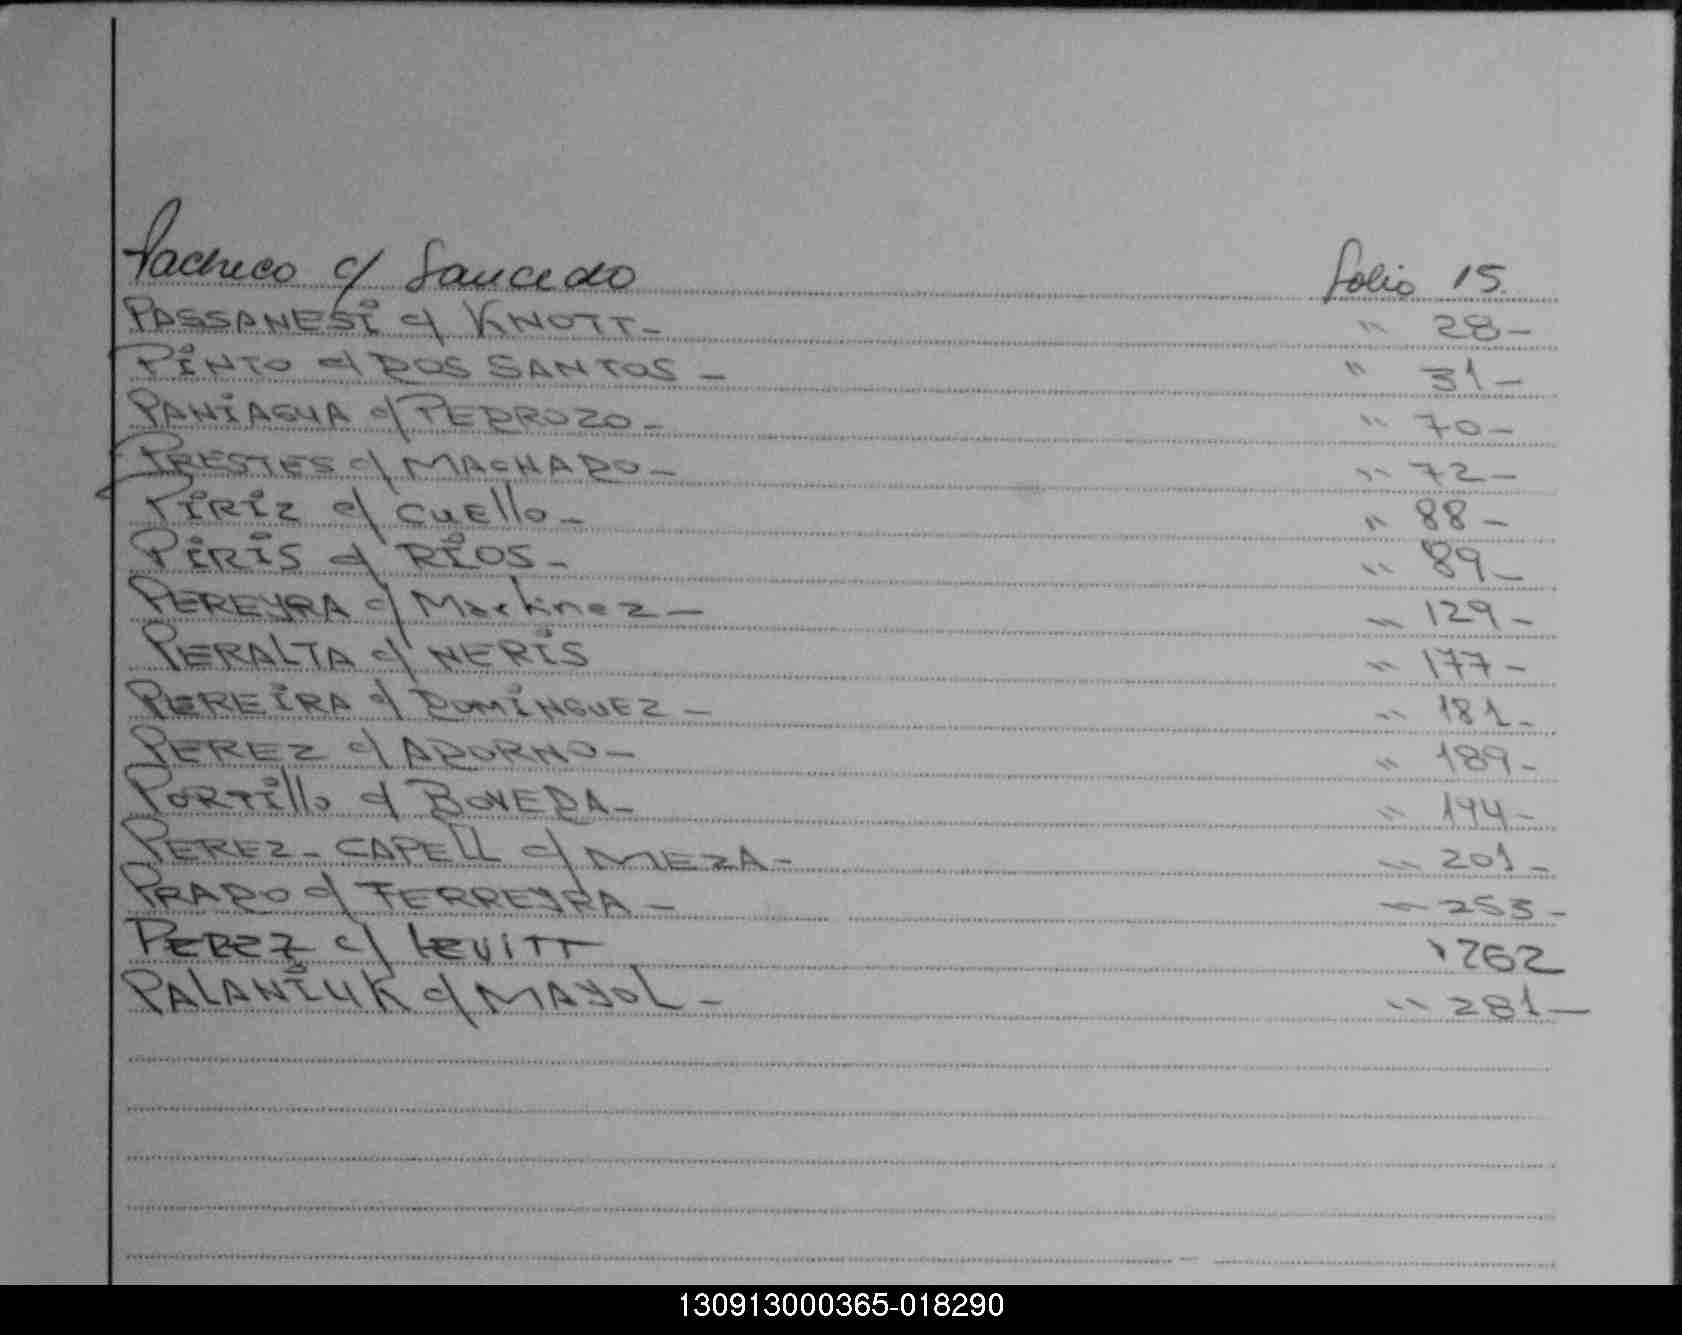 Pacheco c/ Saucedo folio 15
PASSANESi c/ KNOTT- " 28-
PiNTO c/ DOS SANTOS- " 31-
PANiAGUA c/ PEDROZO- " 70-
PRESTES c/ MACHADO- " 72-
PiRiZ c/ CUEllo- " 88-
PiRiS c/ RiOS- " 89-
PEREYRA c/ Martinez- " 129-
PERALTA c/ NERiS " 177-
PEREiRA c/ DOMiNGUEZ- " 181-
PEREZ c/ ADORNO- " 189-
PORTillo c/ BOVEDA- " 194-
PEREZ-CAPELL c/ MEZA- " 201-
PRADO c/ FERREYRA- " 253-
PEREZ c/ LEViTT ' 262
PALANiUK c/ MAYOL- " 281-
130913000365-018290